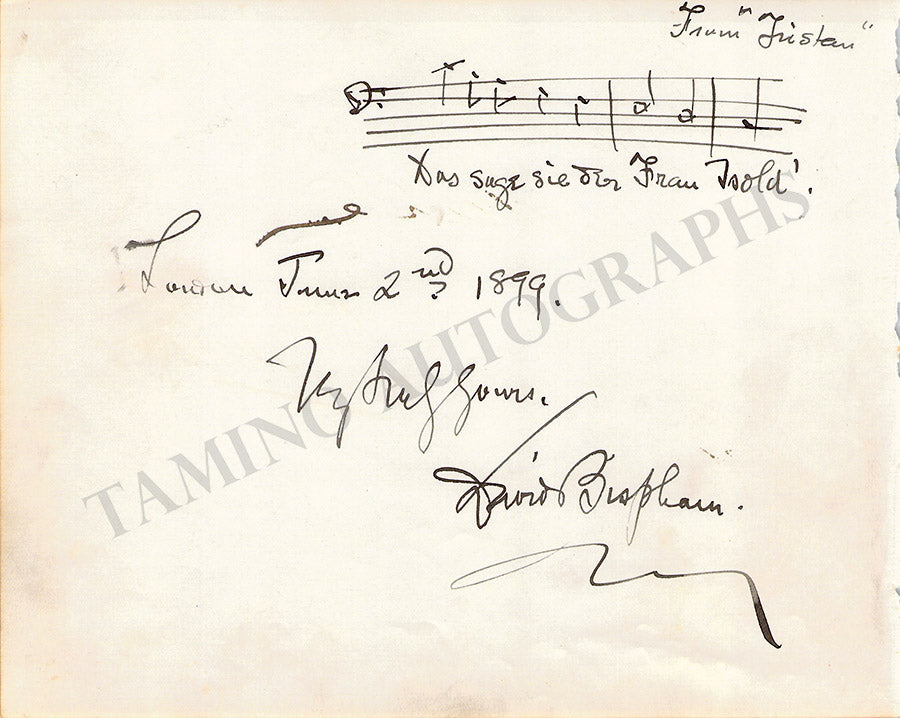 From "Tristan"
Das sage sie der Frau Isold'.
London June 2nd 1899.
Very truly yours.
David Bispham.
TAMINO AUTOGRAPHS